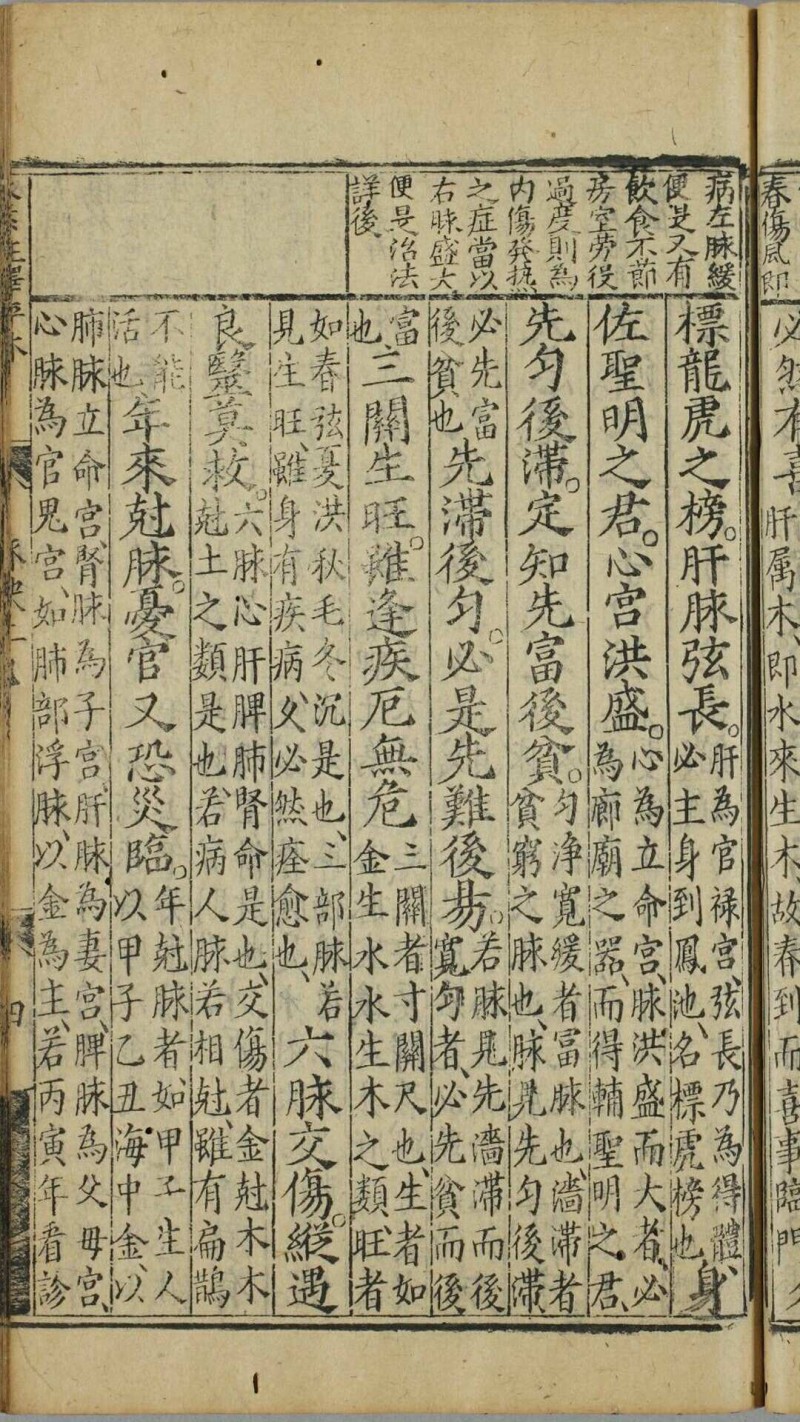 春傷風即
必然有喜肝属木即水來生木故春到而喜事臨門
病左脉緩
便是又有
飲食不節
房室勞役
過度則為
内傷発热
之症當以
右脉盛大
便是治法
詳後
標龍虎之榜。肝脉弦長。肝為官禄宫、弦長乃為得體、
必主身到鳳池、名標虎榜也身
佐聖明之君。心宫洪盛。心為立命宫、脉洪盛而大者、必
為廊廟之器、而得輔聖明之君、
先匀後滯。定知先富後貧。匀浄寛緩者富脉也、濇滯者
貧窮之脉也、脉見先匀後滯
必先富
後貧也先滯後匀。必是先難後易。若脉見先濇滯而後
寛匀者、必先貧而後
富
也、三關生旺。雖逢疾厄無危三關者寸關尺也、生者如
金生水水生木之類、旺者
如春弦夏洪秋毛冬沉是也、三部脉若
見生旺、雖身有疾病、久必然痊愈也、六脉交傷。縱遇
良醫莫救。六脉心肝脾肺腎命是也、交傷者金尅木木
尅土之類是也、若病人脉若相尅、雖有扁鵲
不能
活也年來尅脉。憂官又恐災臨。年尅脉者、如甲子生人
以甲子乙丑海中金、以
肺脉立命宫、腎脉為子宫、肝脉為妻宫、脾脉為父母宫、
心脉為官鬼宫、如肺部浮脉、以金為主、若丙寅年看診
四